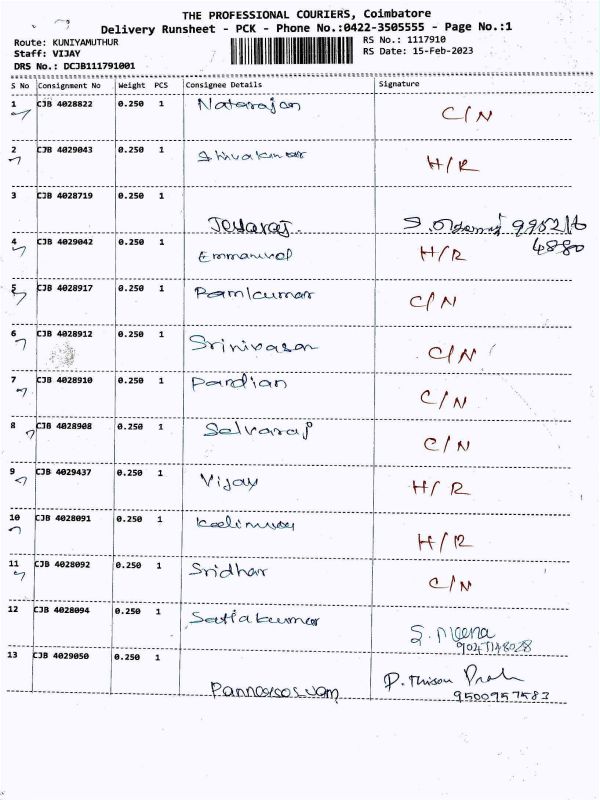 THE PROFESSIONAL COURIERS, Coimbatore
Delivery Runsheet - PCK - Phone No.:0422-3505555 - Page No.:1
Route: KUNIYAMUTHUR
Staff: VIJAY
DRS No.: DCJB111791001
RS No.: 1117910
RS Date: 15-Feb-2023
S No Consignment No Weight PCS Consignee Details Signature
1 CJB 4028822 0.250 1 Natarajan C/N
2 CJB 4029043 0.250 1 Shivakumar H/R
3 CJB 4028719 0.250 1
Jeyaraj. 9952216
4880
4 CJB 4029042 0.250 1 Emmanuel H/R
5 CJB 4028917 0.250 1 Ramkumar C/N
6 CJB 4028912 0.250 1 Srinivasan C/N
7 CJB 4028910 0.250 1 Pandian C/N
8 CJB 4028908 0.250 1 Selvaraj C/N
9 CJB 4029437 0.250 1 Vijay H/R
10 CJB 4028091 0.250 1 H/R
11 CJB 4028092 0.250 1 Sridhar C/N
12 CJB 4028094 0.250 1 S. Meena
13 CJB 4029050 0.250 1
9500957583